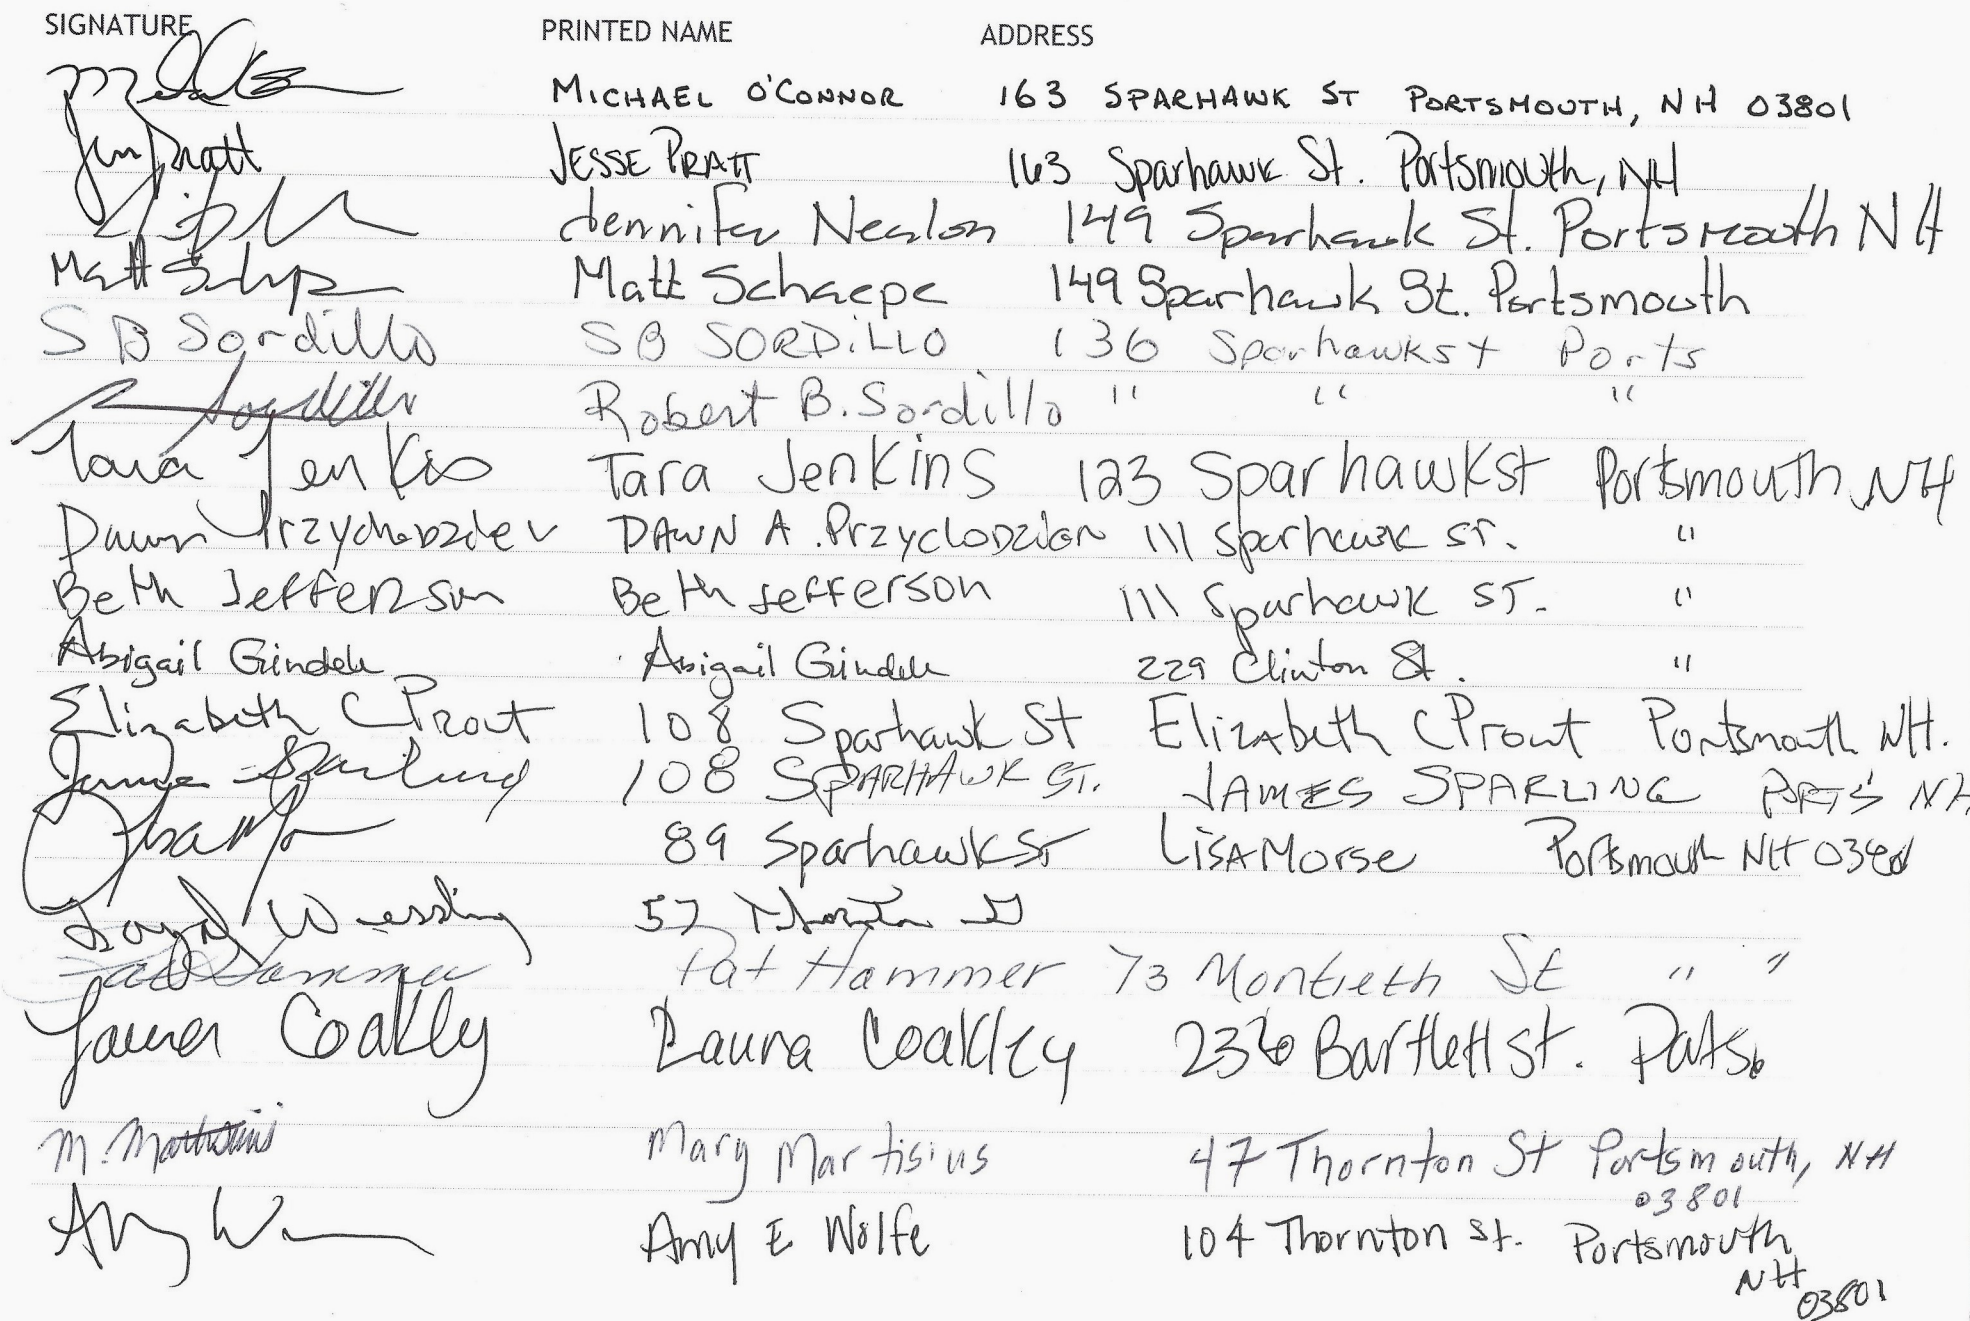 SIGNATURE PRINTED NAME ADDRESS
MICHAEL O'CONNOR 163 SPARHAWK ST PORTSMOUTH, NH 03801
Jen Pratt JESSE PRATT 163 Sparhawk St. Portsmouth, NH
Jennifer Nealon 149 Sparhawk St. Portsmouth NH
Matt Matt Schaepe 149 Sparhawk St. Portsmouth
S B Sordillo S B SORDiLLO 136 Sparhawk st Ports
Sordillo Robert B. Sordillo " " "
Tara Jenkins Tara Jenkins 123 Sparhawk st Portsmouth NH
Dawn DAWN A. 111 Sparhawk ST. "
Beth Jefferson Beth Jefferson 111 Sparhawk ST. "
Abigail Gindele Abigail Gindele 229 Clinton St. "
Elizabeth C Prout 108 Sparhawk St Elizabeth C Prout Portsmouth NH.
James Sparling 108 SPARHAWK ST. JAMES SPARLING PRTS NH
89 Sparhawk St Lisa Morse Portsmouth NH
57 Thornton St
Pat Hammer Pat Hammer 73 Montieth St " "
Laura Coakley Laura Coakley Bartlett St. Ports.
M. Martisius Mary Martisius 47 Thornton St Portsmouth, NH
03801
Amy W Amy E Wolfe 104 Thornton St. Portsmouth
NH
03801